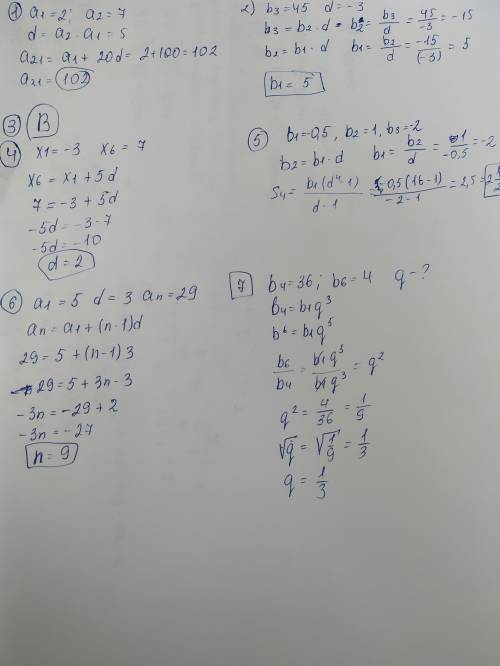 ① a1 = 2; a2 = 7
d = a2 - a1 = 5
a21 = a1 + 20d = 2+100 = 102
a21 = 102
2) b3 = 45 d = -3
b3 = b2 · d b2 = b3/d = 45/-3 = -15
b2 = b1 · d b1 = b2/d = -15/(-3) = 5
b1 = 5
③ B
④ x1 = -3 x6 = 7
x6 = x1 + 5d
7 = -3 + 5d
-5d = -3-7
-5d = -10
d = 2
⑤ b1 = -0,5, b2 = 1, b3 = -2
b2 = b1 · d b1 = b2/d = 1/-0,5 = -2
S4 = b1(d⁴-1)/d-1 = -0,5(16-1)/-2-1 = 2,5 =
⑥ a1 = 5 d = 3 an = 29
an = a1 + (n-1)d
29 = 5 + (n-1)3
29 = 5 + 3n - 3
-3n = -29 + 2
-3n = -27
n = 9
7 b4 = 36; b6 = 4 q - ?
b4 = b1q³
b⁶ = b1q⁵
b6/b4 = b1q⁵/b1q³ = q²
q² = 4/36 = 1/9
√q = √1/9 = 1/3
q = 1/3